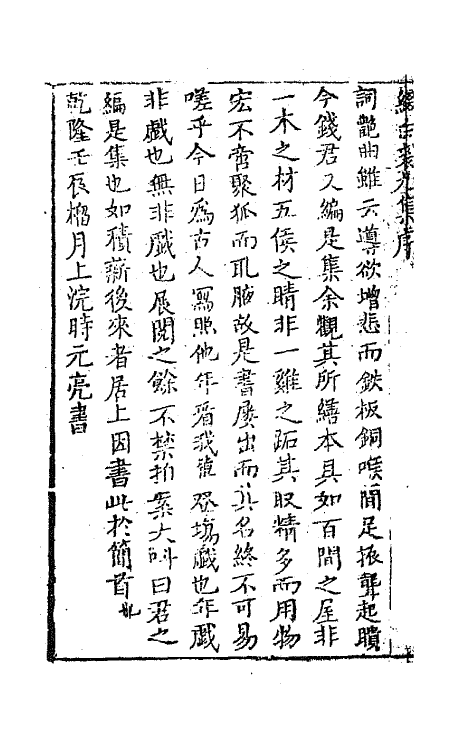 綴白裘九集序
詞艷曲雖云導欲增悲而鉄板銅喉間足振聾起聵
今錢君又編是集余觀其所繕本具如百間之屋非
一木之材五侯之鯖非一雞之跖其取精多而用物
宏不啻聚狐而取腋故是書屢出而其名終不可易
嗟乎今日爲古人寫照他年看我輩登塲戲也非戲
非戲也無非戲也展閱之餘不禁拍案大呌曰君之
編是集也如積薪後來者居上因書此於簡首也
乾隆壬辰榴月上浣時元亮書